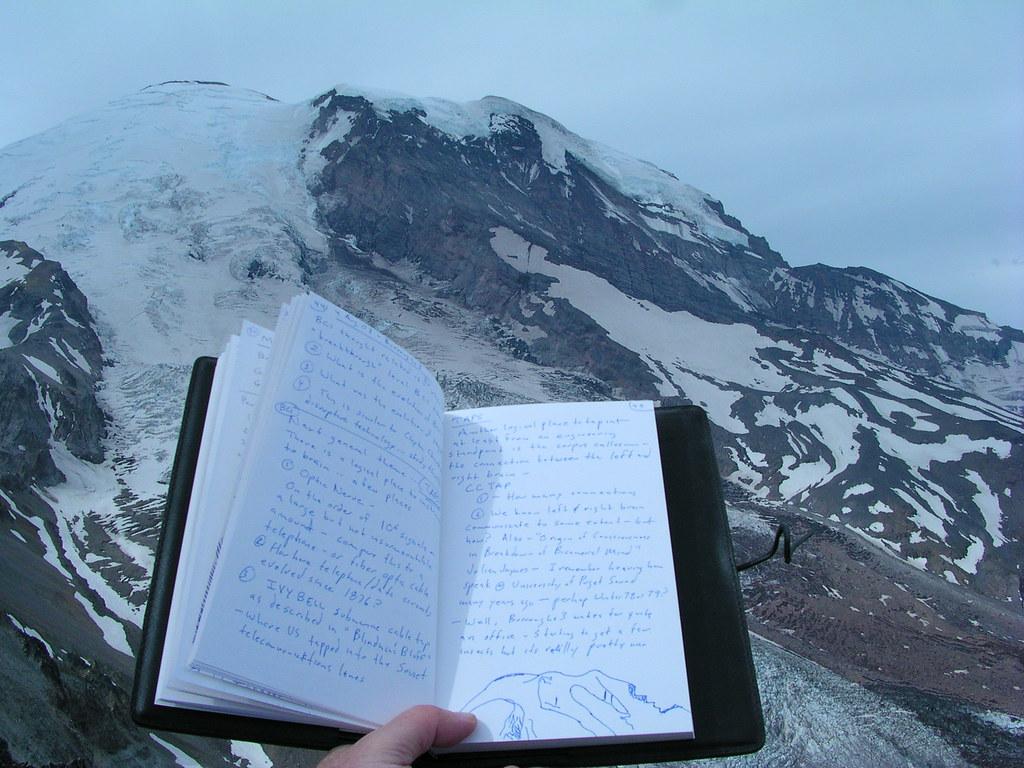 But thought
breakthrough level
② What is the
③ What was the evolution
④ This is similar to
disruptive technology
Next general theme
There is a logical place to
to brain in a few places
① Optic Nerve -
On the order of 10⁶ signals -
a large but not unreasonable
amount - compare this to a
telephone - or fiber optic cable
② How have telephone/data circuits
evolved since 1876?
③ IVY BELL submarine cable tap
as described in "Blindman's Bluff"
- where US tapped into the Soviet
telecommunications lines
TAPS
logical place to tap into
at least from an engineering
standpoint is the corpus callosum
the connection between the left and
right brain -
CC TAP
① How many connections
② We know left & right brain
communicate to some extent - but
how? Also - "Origin of Consciousness
in Breakdown of Bicameral Mind"
Julian Jaynes - I remember hearing him
speak @ University of Puget Sound
many years ago - perhaps Winter 78 or 79?
- Well, Burroughs 3 makes for quite
an office - Starting to get a few
insects but its really pretty nice